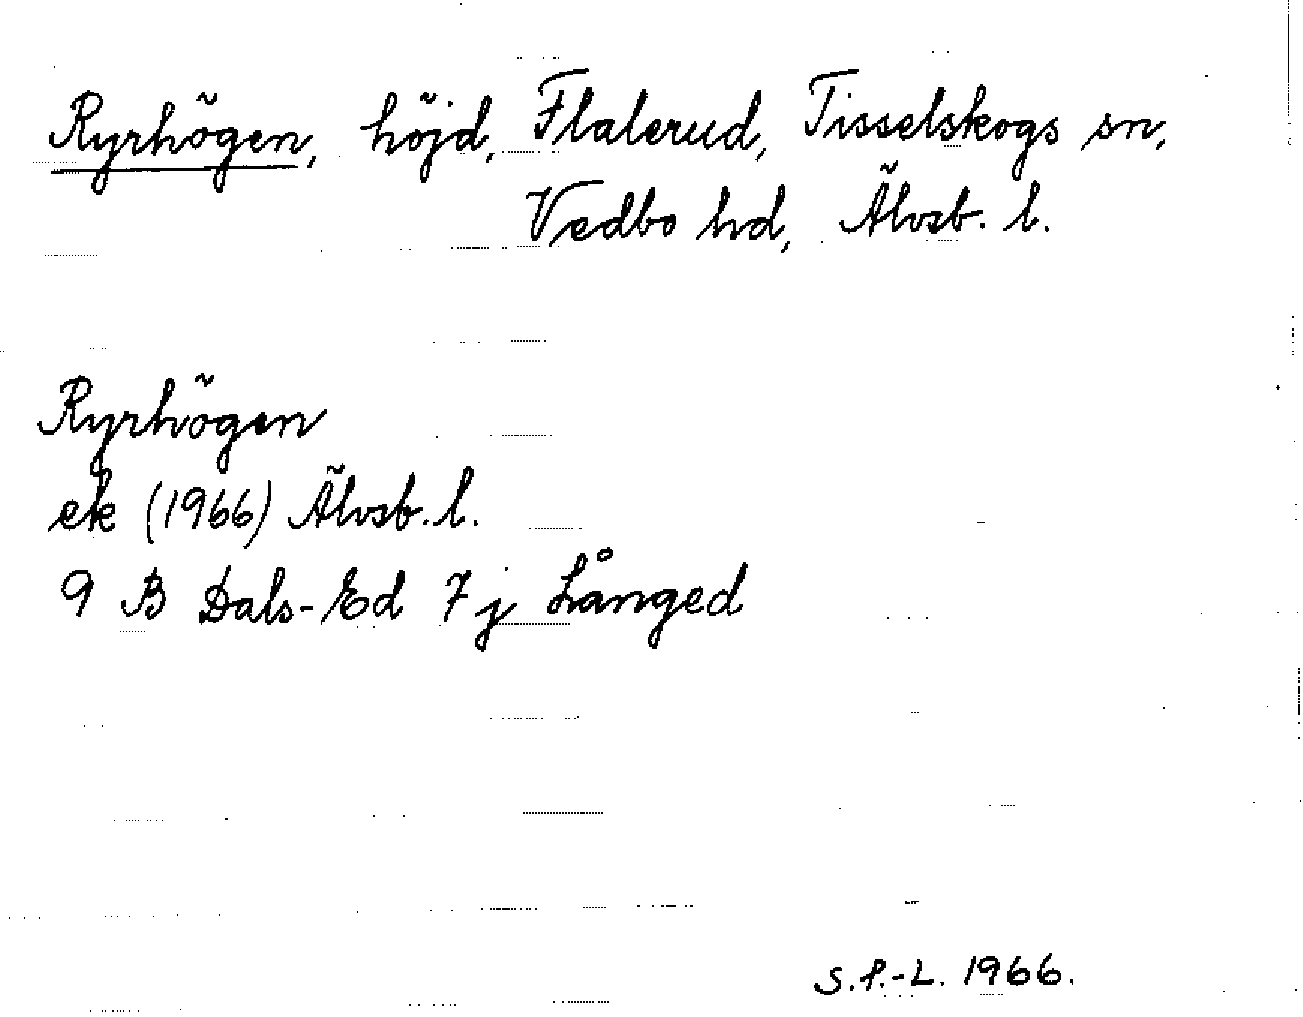 Ryrhögen, höjd, Flalerud, Tisselskogs sn,
Vedbo hd, Älvsb. l.
Ryrhögen
ek (1966) Älvsb. l.
9 B Dals-Ed 7 j Långed
S.P.-L. 1966.